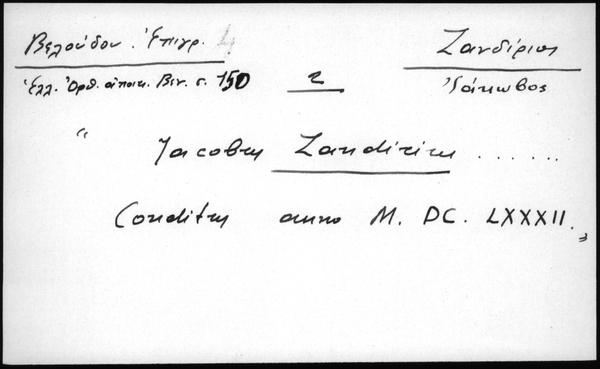 Βελούδου. Ἐπιγρ. 4
Ζανδίριος
Ἑλλ. Ὀρθ. ἀποικ. Βεν. σ. 150
2
Ἰάκωβος
" Jacobus Zandirius ......
Conditus anno M. DC. LXXXII. "